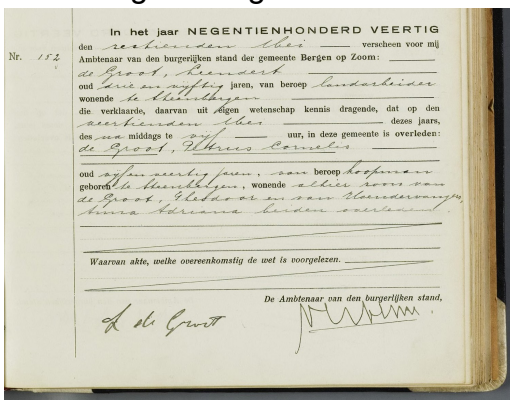 In het jaar NEGENTIENHONDERD VEERTIG
den zestienden Mei verscheen voor mij
Nr. 152 Ambtenaar van den burgerlijken stand der gemeente Bergen op Zoom:
de Groot, Leendert
oud drie en vijftig jaren, van beroep landarbeider
wonende te Steenbergen
die verklaarde, daarvan uit eigen wetenschap kennis dragende, dat op den
veertienden Mei dezes jaars,
des na middags te vijf uur, in deze gemeente is overleden:
de Groot, Petrus Cornelis
oud vijf en veertig jaren, van beroep koopman
geboren te Steenbergen, wonende alhier zoon van
de Groot, Theodoor en van
Anna Adriana beiden overleden.
Waarvan akte, welke overeenkomstig de wet is voorgelezen.
De Ambtenaar van den burgerlijken stand,
L de Groot